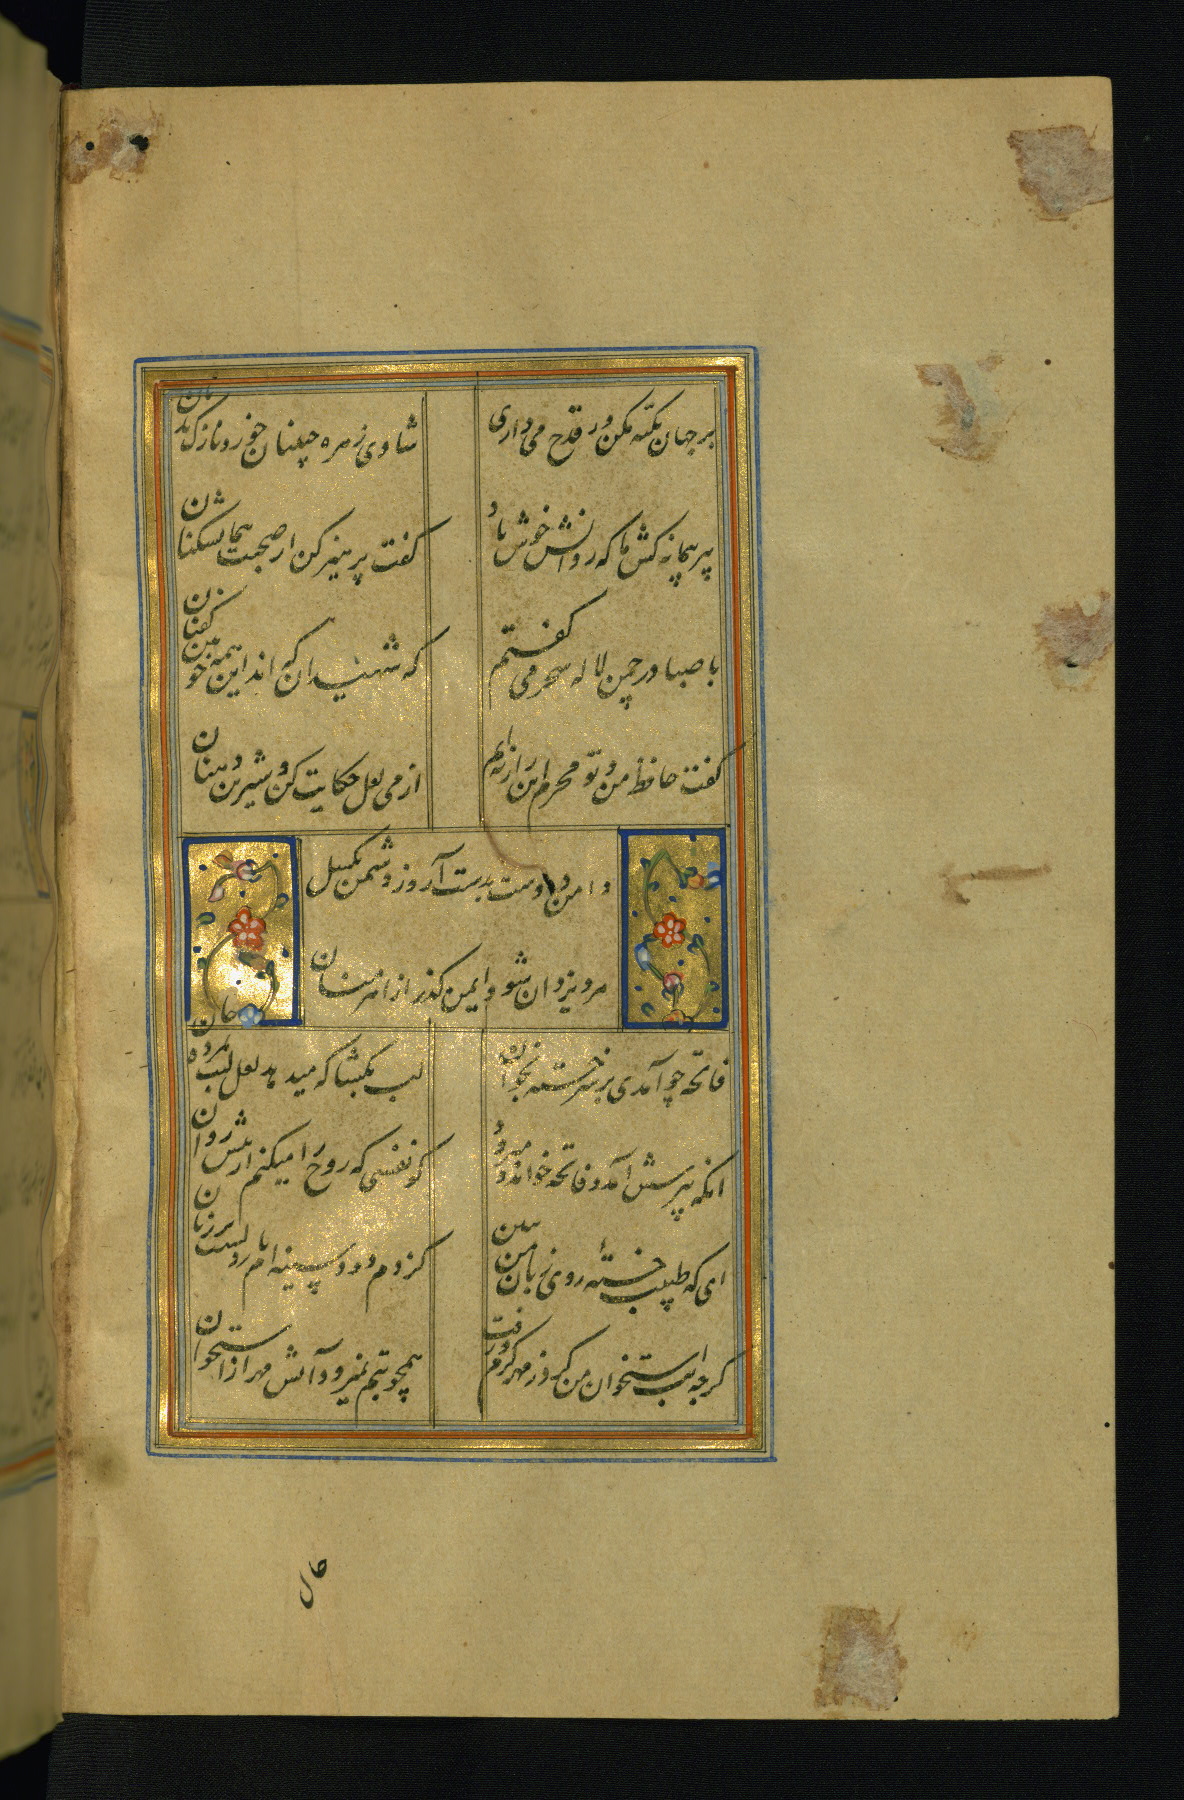 بر جهان تکیه مکن ور قدحی می داری
شادی زهره جبینان خور و نازک بدنان
پیر پیمانه کش ما که روانش خوش باد
گفت پرهیز کن از صحبت پیمان شکنان
با صبا در چمن لاله سحر می گفتم
که شهیدان که اند این همه خونین کفنان
گفت حافظ من و تو محرم این راز نه ایم
از می لعل حکایت کن و شیرین دهنان
دامن دوست بدست آر و ز دشمن بگسل
مرد یزدان شو و ایمن گذر از اهرمنان
فاتحه چو آمدی بر سر خسته بخوان
لب بگشا که میدهد لعل لبت بمرده جان
آنکه بپرسش آمد و فاتحه خواند و میرود
کو نفسی که روح را میکنم از پیش روان
ای که طبیب خسته روی زبان من ببین
کز دم و دود سینه ام بار دلست بر زبان
گرچه تب استخوان من کرد ز مهر گرم و رفت
همچو تبم نمیرود آتش مهر از استخوان
حال